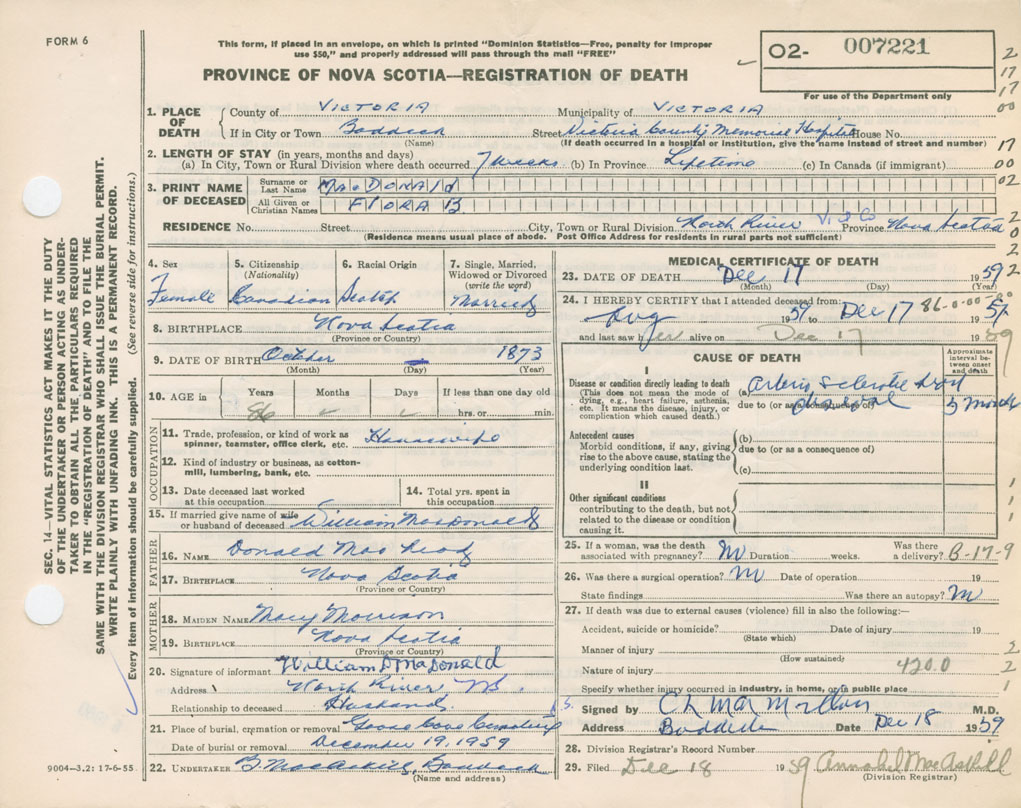 FORM 6
This form, if placed in an envelope, on which is printed "Dominion Statistics—Free, penalty for improper
use $50," and properly addressed will pass through the mail "FREE"
PROVINCE OF NOVA SCOTIA—REGISTRATION OF DEATH
02- 007221
For use of the Department only
SEC. 14—VITAL STATISTICS ACT MAKES IT THE DUTY
OF THE UNDERTAKER OR PERSON ACTING AS UNDER-
TAKER TO OBTAIN ALL THE PARTICULARS REQUIRED
IN THE "REGISTRATION OF DEATH" AND TO FILE THE
SAME WITH THE DIVISION REGISTRAR WHO SHALL ISSUE THE BURIAL PERMIT.
WRITE PLAINLY WITH UNFADING INK. THIS IS A PERMANENT RECORD.
Every item of information should be carefully supplied. (See reverse side for instructions.)
1. PLACE OF DEATH
County of VICTORIA Municipality of VICTORIA
If in City or Town Baddeck Street Victoria County Memorial Hospital House No.
(Name) (If death occurred in a hospital or institution, give the name instead of street and number)
2. LENGTH OF STAY (in years, months and days)
(a) In City, Town or Rural Division where death occurred 7 weeks (b) In Province Lifetime (c) In Canada (if immigrant)
3. PRINT NAME OF DECEASED
Surname or Last Name MacDONALD
All Given or Christian Names FLORA B
RESIDENCE No. Street City, Town or Rural Division North River Vic Co Province Nova Scotia
(Residence means usual place of abode. Post Office Address for residents in rural parts not sufficient)
4. Sex Female
5. Citizenship (Nationality) Canadian
6. Racial Origin Scotch
7. Single, Married, Widowed or Divorced (write the word) Married
8. BIRTHPLACE Nova Scotia
(Province or Country)
9. DATE OF BIRTH October 1873
(Month) (Day) (Year)
10. AGE in Years Months Days If less than one day old
86 hrs. or min.
OCCUPATION
11. Trade, profession, or kind of work as
spinner, teamster, office clerk, etc. Housewife
12. Kind of industry or business, as cotton-
mill, lumbering, bank, etc.
13. Date deceased last worked
at this occupation
14. Total yrs. spent in
this occupation
15. If married give name of wife
or husband of deceased William MacDonald
FATHER
16. NAME Donald MacLeod
17. BIRTHPLACE Nova Scotia
(Province or Country)
MOTHER
18. MAIDEN NAME Mary Morrison
19. BIRTHPLACE Nova Scotia
(Province or Country)
20. Signature of informant William D MacDonald
Address North River NS.
Relationship to deceased Husband
21. Place of burial, cremation or removal Goose Cove Cemetery
Date of burial or removal December 19, 1959
22. UNDERTAKER B. MacAskill, Baddeck
(Name and address)
9004—3.2: 17-6-55
MEDICAL CERTIFICATE OF DEATH
23. DATE OF DEATH Dec 17 1959
(Month) (Day) (Year)
24. I HEREBY CERTIFY that I attended deceased from:
Aug 1959 to Dec 17 1959
and last saw her alive on Dec 17 59
CAUSE OF DEATH
Approximate interval between onset and death
I
Disease or condition directly leading to death
(This does not mean the mode of
dying, e.g., heart failure, asthenia,
etc. It means the disease, injury, or
complication which caused death.)
(a) Arterio sclerotic
due to (or as a consequence of)
5 months
Antecedent causes
Morbid conditions, if any, giving
rise to the above cause, stating the
underlying condition last.
(b)
due to (or as a consequence of)
(c)
II
Other significant conditions
contributing to the death, but not
related to the disease or condition
causing it.
25. If a woman, was the death
associated with pregnancy? Duration weeks. Was there
a delivery? 8-17-9
26. Was there a surgical operation? Date of operation 19
State findings Was there an autopsy?
27. If death was due to external causes (violence) fill in also the following:—
Accident, suicide or homicide? Date of injury 19
(State which)
Manner of injury
(How sustained)
Nature of injury 420.0
Specify whether injury occurred in industry, in home, or in public place
Signed by C L MacMillan M.D.
Address Baddeck Date Dec 18 1959
28. Division Registrar's Record Number
29. Filed Dec 18 1959 Annabel MacAskill
(Division Registrar)